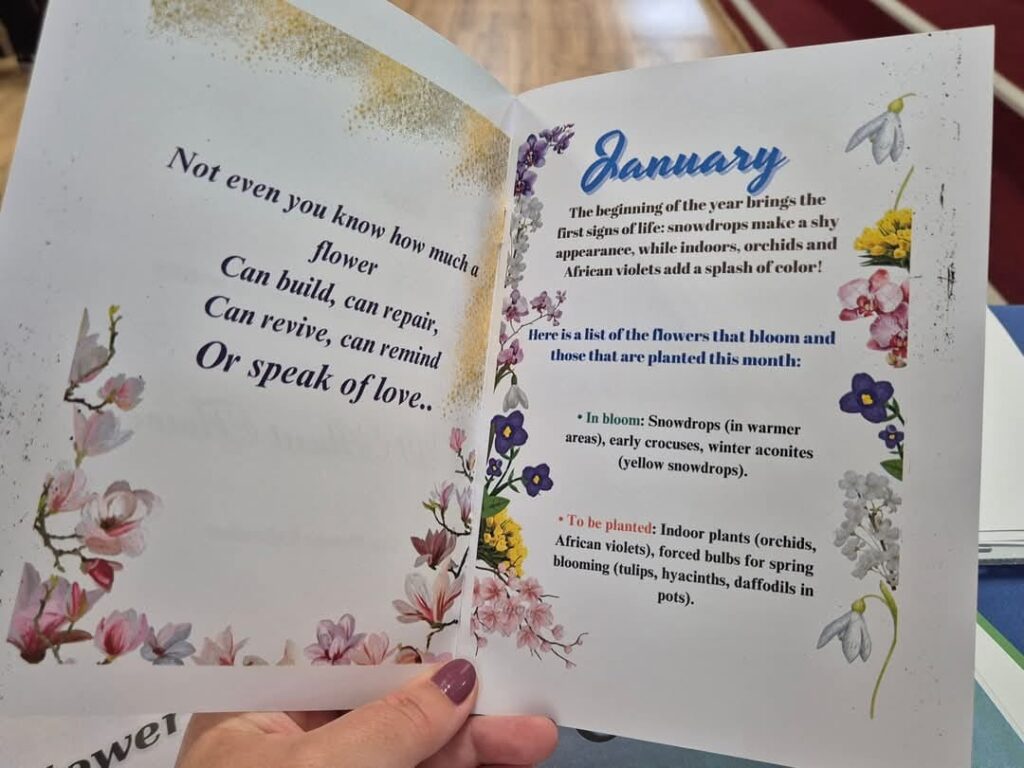 Not even you know how much a
flower
Can build, can repair,
Can revive, can remind
Or speak of love..
January
The beginning of the year brings the
first signs of life: snowdrops make a shy
appearance, while indoors, orchids and
African violets add a splash of color!
Here is a list of the flowers that bloom and
those that are planted this month:
• In bloom: Snowdrops (in warmer
areas), early crocuses, winter aconites
(yellow snowdrops).
• To be planted: Indoor plants (orchids,
African violets), forced bulbs for spring
blooming (tulips, hyacinths, daffodils in
pots).